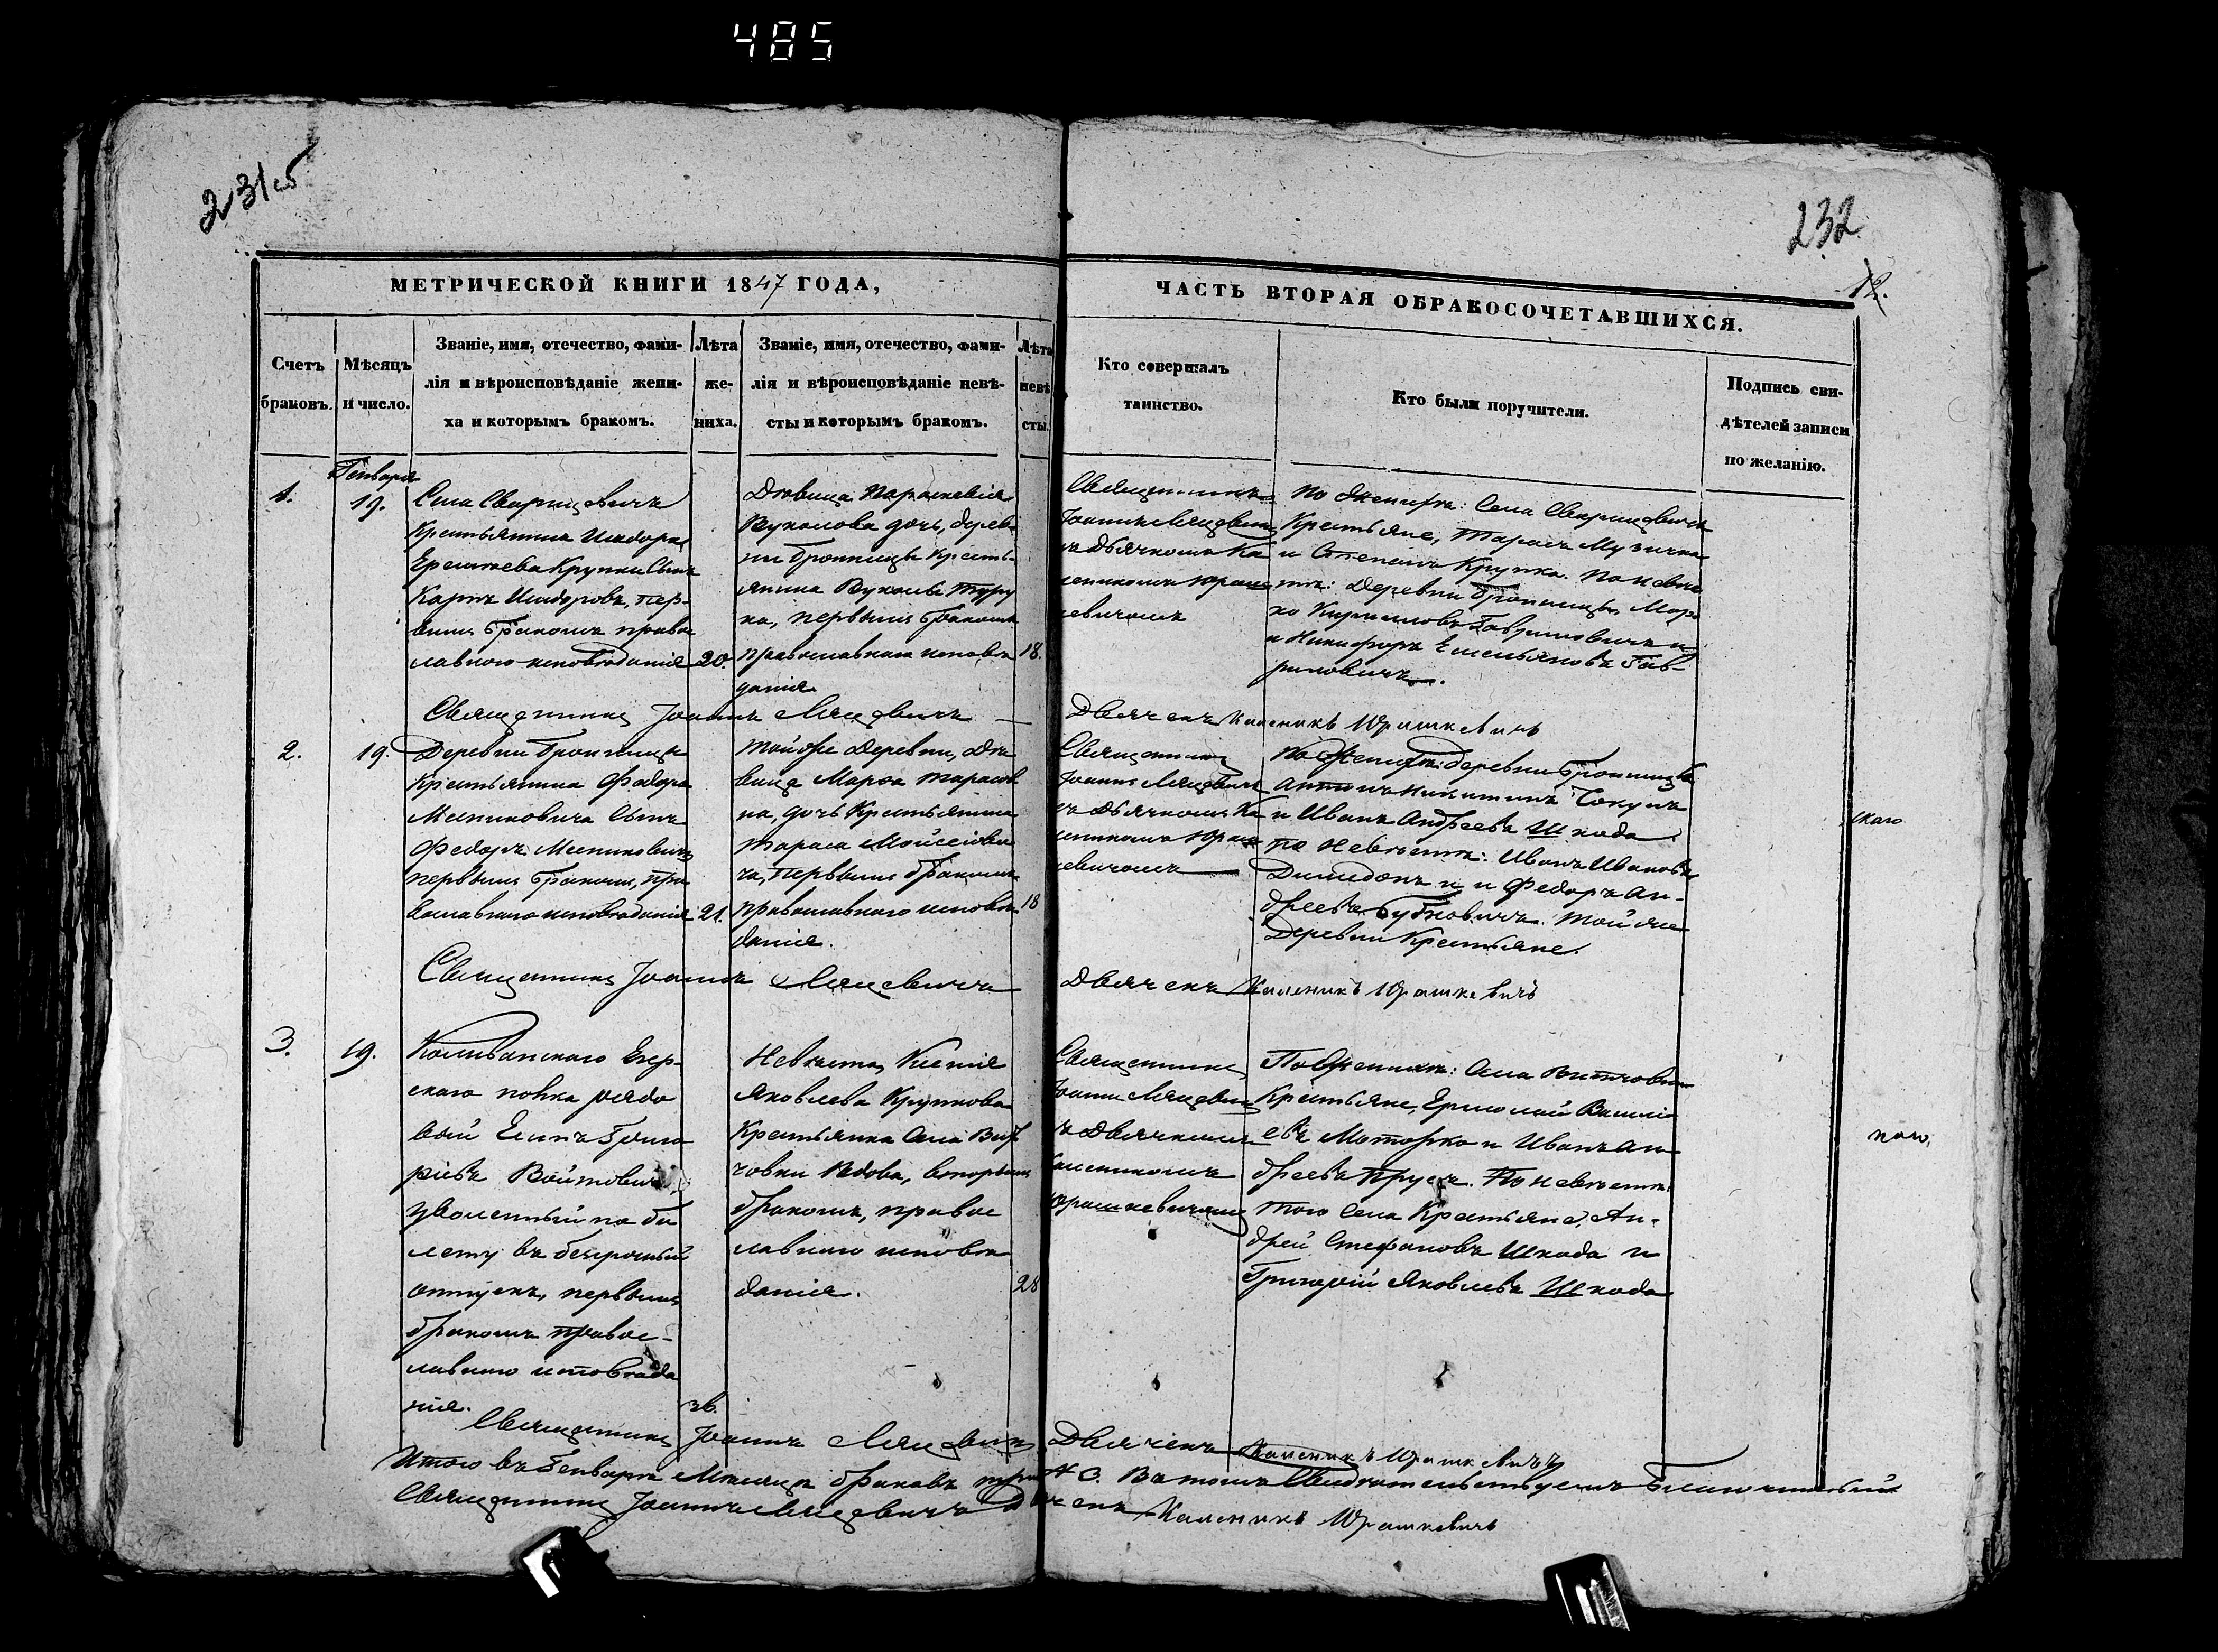 485
231об
232
12.
МЕТРИЧЕСКОЙ КНИГИ 1847 ГОДА,
ЧАСТЬ ВТОРАЯ ОБРАКОСОЧЕТАВШИХСЯ.
Счетъ
браковъ.
Мѣсяцъ
и число.
Званіе, имя, отечество, фами-
лія и вѣроисповѣданіе жени-
ха и которымъ бракомъ.
Лѣта
же-
ниха.
Званіе, имя, отечество, фами-
лія и вѣроисповѣданіе невѣ-
сты и которымъ бракомъ.
Лѣта
невѣ
сты.
Кто совершалъ
таинство.
Кто были поручители.
Подпись сви-
дѣтелей записи
по желанію.
1.
Генваря
19.
Села Сварицевичъ
Крестьянина Исидора
Еремѣева Крупки Сынъ
Карпъ Исидоровъ, пер-
вымъ бракомъ правос
лавнаго исповѣданія
20.
Дѣвица Параскевія
Вуколова дочь, дерев-
ни Бронницы Кресть-
янина Вукола Туру
ка, первымъ бракомъ
православнаго исповѣ
данія
18.
Священникъ
Іоаннъ Ляцевичъ
съ Дьячкомъ Ка
леникомъ Юраш
кевичомъ
По Женихѣ: Села Сварицевичъ
Крестьяне, Тарасъ Музичка
и Степанъ Крупка. По Невѣс
тѣ: Деревни Бронницы Мар
ко Кирилловъ Гавриловичъ и
и Никифоръ Емельяновъ Гав-
риловичъ.
Священникъ Іоаннъ Ляцевичъ
Дьячекъ Каленикъ Юрашкевичъ
2.
19.
Деревни Бронницы
Крестьянина Федора
Мисниковича Сынъ
Федоръ Мисниковичъ
первымъ бракомъ, пра
вославнаго исповѣданія
21.
Той же Деревни, Дѣ
вица Марѳа Тарасов
на, дочь Крестьянина
Тараса Мойсеіови
ча, первымъ бракомъ
православнаго исповѣ
данія.
18
Священникъ
Іоаннъ Ляцевичъ
съ Дьячкомъ Ка
леникомъ Юраш
кевичомъ
По Женихѣ: деревни Бронницы
Антонъ Никитинъ
и Иванъ Андреевъ Шкода
по Невѣстѣ: Иванъ Ивановъ
и и Федоръ Ан-
дреевъ Бутковичъ. Той же
Деревни Крестьяне.
Священникъ Іоаннъ Ляцевичъ
Дьячекъ Каленикъ Юрашкевичъ
скаго
3.
19.
Колыванскаго Егер-
скаго полка рядо
вый Григо
ріевъ Войтовичъ,
уволенный по би
лету въ безсрочный
отпускъ, первымъ
бракомъ правос-
лавнаго исповѣда
нія.
36.
Невѣста, Ксенія
Яковлева Крупкова
Крестьянка Села
Вдова, вторымъ
бракомъ, правос
лавнаго исповѣ
данія.
28
Священникъ
Іоаннъ Ляцевичъ
съ Дьячкомъ
Каленикомъ
Юрашкевичомъ
По Женихѣ: Села
Крестьяне, Ермолай Василі
евъ Моторко и Иванъ Ан
дреевъ Прусъ. По невѣстѣ:
того Села Крестьяне, Ан-
дрей Стефановъ Шкода и
Григорій Яковлевъ Шкода
наго,
Священникъ Іоаннъ Ляцевичъ
Дьячекъ Каленикъ Юрашкевичъ
Итого въ Генварѣ Мѣсяцѣ браковъ три № 3. Въ томъ Свидѣтельствуемъ
Священникъ Іоаннъ Ляцевичъ Дьячекъ Каленикъ Юрашкевичъ